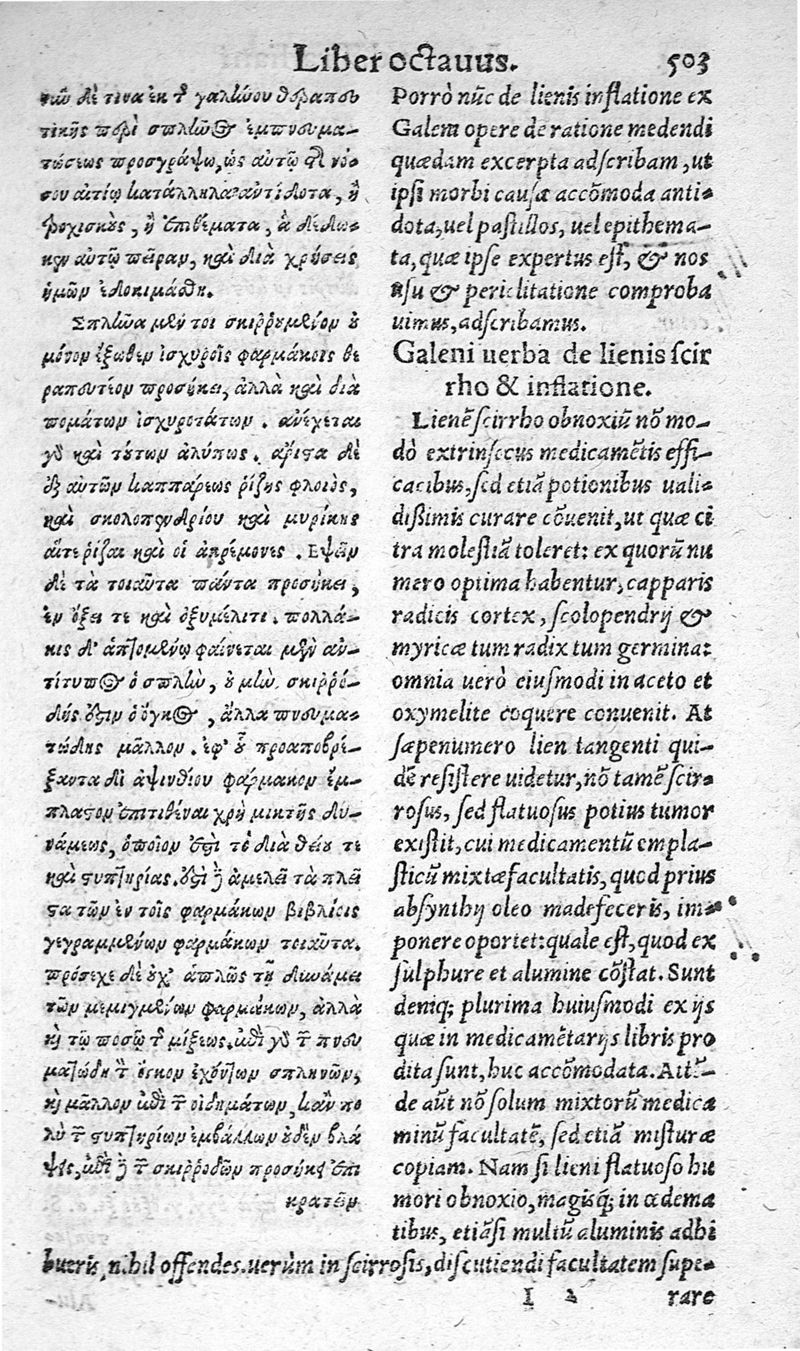 Liber octauus. 503
τικῆς περὶ σπληνὸς ἐμπνευμα-
τώσεως προσγράψω, ὡς αὐτῷ
σου αἰτίῳ κατάλληλα ἀντίδοτα, ἢ
τροχισκοὺς, ἢ ἐπιθέματα, ἃ δέδω-
κεν αὐτῷ πεῖραν, καὶ διὰ χρήσεις
ἡμῶν ἐδοκιμάσθη.
Σπλῆνα μέν τοι σκιῤῥουμένον οὐ
μόνον ἔξωθεν ἰσχυροῖς φαρμάκοις θε
ραπευτέον προσήκει, ἀλλὰ καὶ διὰ
πομάτων ἰσχυροτάτων. ἀνέχεται
γὰρ καὶ τούτων ἀλύπως. ἄριστα δὲ
ἐξ αὐτῶν καππάρεως ῥίζης φλοιὸς,
καὶ σκολοπενδρίου καὶ μυρίκης
αἵτε ῥίζαι καὶ οἱ ἀκρέμονες. Ἑψεῖν
δὲ τὰ τοιαῦτα πάντα προσήκει,
ἐν ὄξει τε καὶ ὀξυμέλιτι. πολλά-
κις δ' ἁπτομένῳ φαίνεται μὲν ἀν-
τίτυπος ὁ σπλὴν, οὐ μὴν σκιῤῥώ-
δης ἐστιν ὁ ὄγκος, ἀλλα πνευμα-
τώδης μᾶλλον. ἐφ' οὗ προαποβρέ-
ξαντα δι ἀψινθίου φάρμακον ἔμ-
πλαστον ἐπιτιθέναι χρὴ μικτῆς δυ-
νάμεως, ὁποῖον ἐστὶ τὸ διὰ θείου τε
καὶ στυπτηρίας. ἐστὶ δὲ ἀμελεῖ τὰ πλεῖ
στα τῶν ἐν τοῖς φαρμάκων βιβλίοις
γεγραμμένων φαρμάκων τοιαῦτα.
πρόσεχε δὲ οὐχ' ἁπλῶς τῇ δυνάμει
τῶν μεμιγμένων φαρμάκων, ἀλλὰ
καὶ τῷ ποσῷ τῆς μίξεως. ἐπὶ γὰρ τῶν πνευ
ματώδη τὸν ὄγκον ἐχόντων σπληνῶν,
καὶ μᾶλλον ἐπὶ τῶν οἰδημάτων, κἂν πο
λὺ τῶν στυπτηρίων ἐμβάλλων οὐδὲν βλά
ψεις, ἐπὶ δὲ τῶν σκιῤῥοδῶν προσήκει ἐπι
κρατεῖν
Porrò nūc de lienis inflatione ex
Galeni opere de ratione medendi
quædam excerpta adscribam, ut
ipsi morbi causæ accōmoda anti-
dota, uel pastillos, uel epithema-
ta, quæ ipse expertus est, & nos
usu & periclitatione comproba
uimus, adscribamus.
Galeni uerba de lienis scir
rho & inflatione.
Lienē scirrho obnoxiū nō mo-
dò extrinsecus medicamētis effi-
cacibus, sed etiā potionibus uali-
dissimis curare cōuenit, ut quæ ci
tra molestiā toleret: ex quorū nu
mero optima habentur, capparis
radicis cortex, scolopendrij &
myricæ tum radix tum germina:
omnia uerò eiusmodi in aceto et
oxymelite coquere conuenit. At
sæpenumero lien tangenti qui-
dē resistere uidetur, nō tamē scir-
rosus, sed flatuosus potius tumor
existit, cui medicamentū empla-
sticū mixtæ facultatis, quod prius
absynthij oleo madefeceris, im-
ponere oportet: quale est, quod ex
sulphure et alumine cōstat. Sunt
deniq; plurima huiusmodi ex ijs
quæ in medicamētarijs libris pro
dita sunt, huc accōmodata. Attē-
de aūt nō solum mixtorū medica
minū facultatē, sed etiā misturæ
copiam. Nam si lieni flatuoso hu
mori obnoxio, magisq; in œdema
tibus, etiāsi multū aluminis adhi
bueris, nihil offendes. uerùm in scirrosis, discutiendi facultatem supe-
I 2 rare